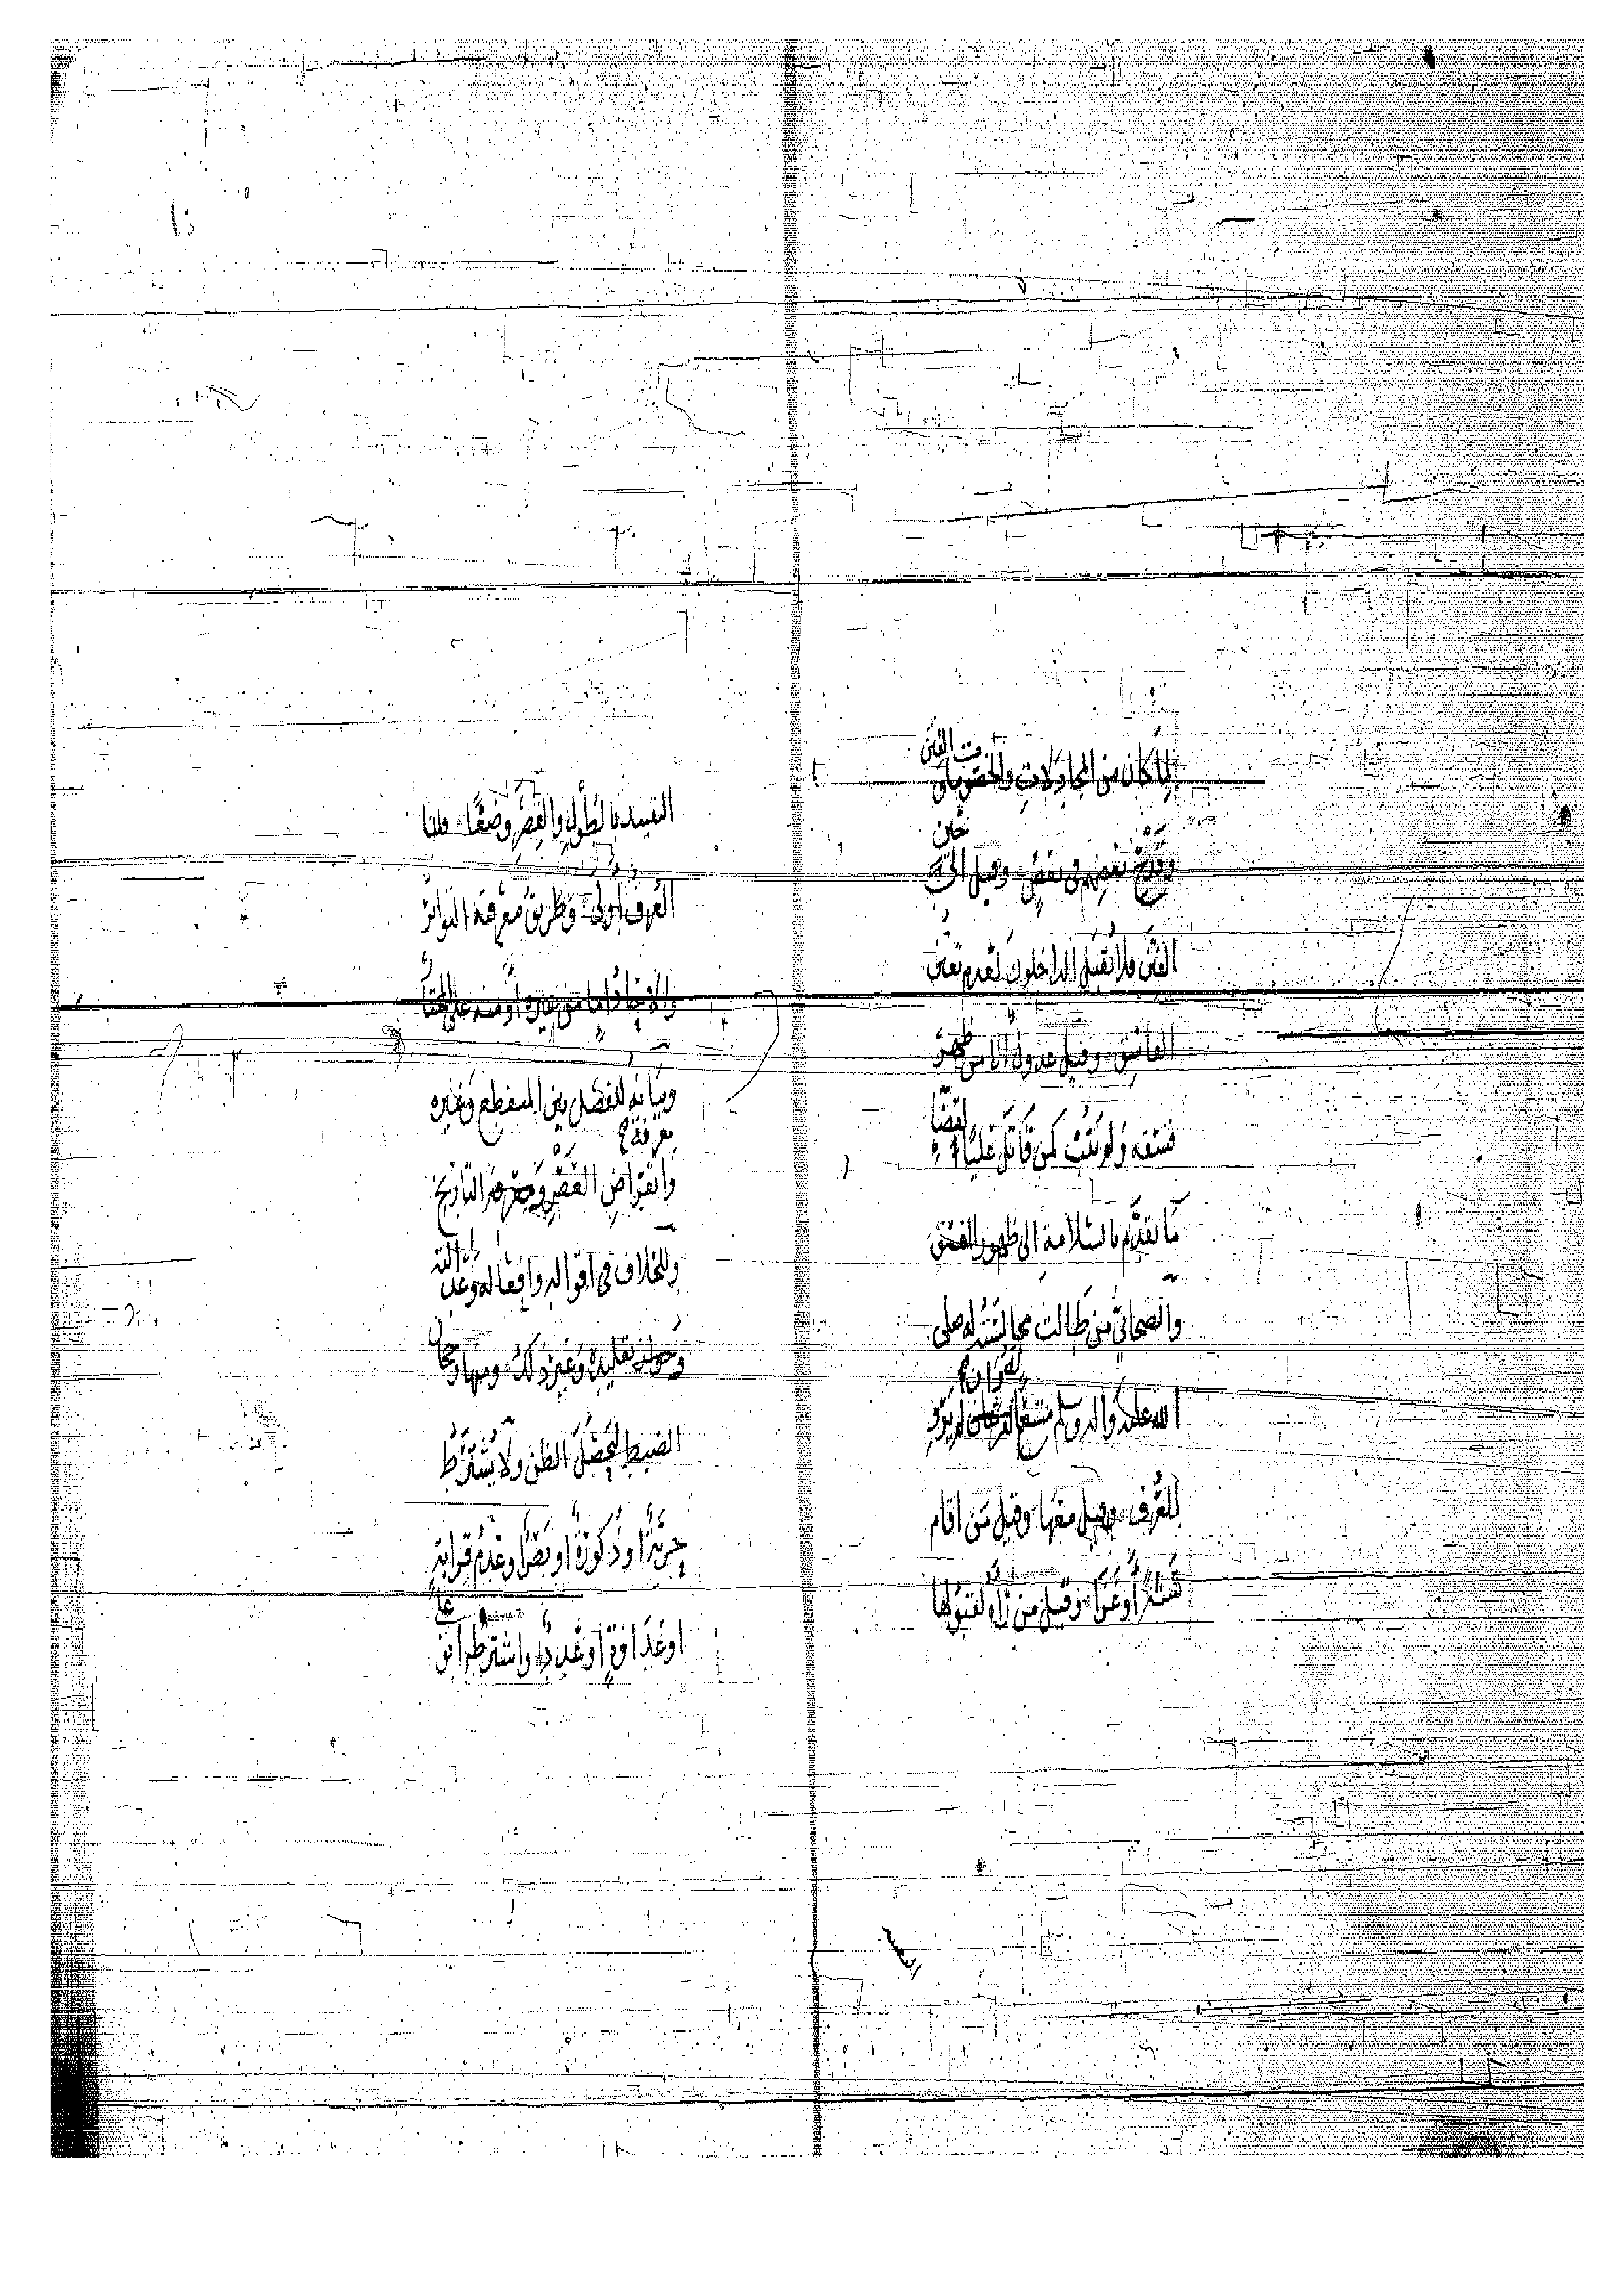 لِمَا كان من المجادلات والخصومات
وقدح بعضهم في بعض وقيل الى حين
الفتن فلا يقبل الداخلون لعدم تعين
الفاسق وقيل عدول الا من ظهر
فسقه ولم يتب كمن قاتل عليًا لقضاء
ما تقدم بالسلامة الى ظهور الفسق
والصحابي من طالت مجالسته له صلى
الله عليه وآله وسلم متبعًا لشرعه
للعرف وقيل معها وقيل من اقام
سنة او غزا وقيل من رآه لقبولها
التقييد بالطول والقصر وضعًا قلنا
العرف اولى وطريق معرفته التواتر
والآحاد اما من غيره او منه على المختار
وبيانه للفصل بين المنقطع وغيره
وانقراض العصر ومعرفة التاريخ
وللخلاف في اقواله وافعاله
وجواز تقليده وغير ذلك ومنها رجحان
الضبط ليحصل الظن ولا يشترط
حرية او ذكورة او بصر او عدم قرابة
او عداوة او عدد واشترط ابو علي